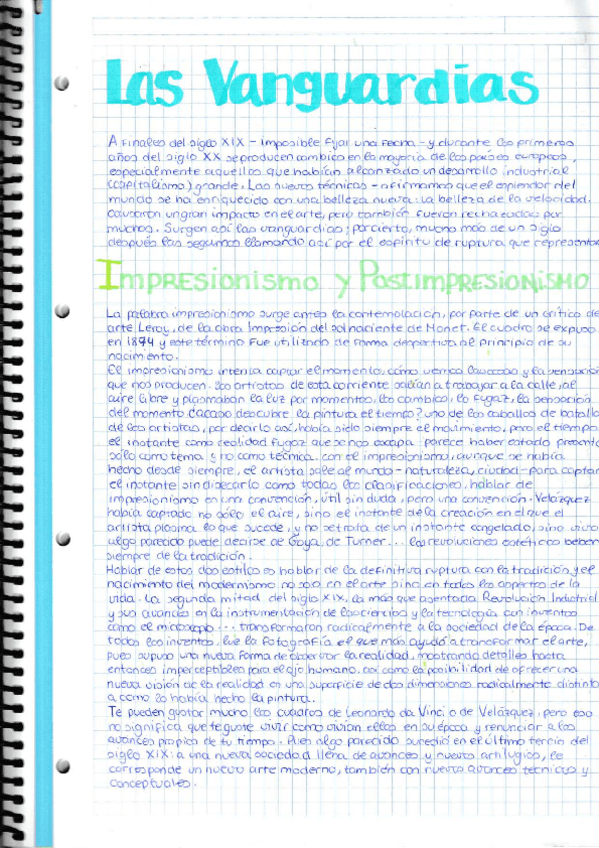 Las Vanguardias
A finales del siglo XIX - imposible fijar una fecha - y durante los primeros
años del siglo XX se producen cambios en la mayoría de los países europeos,
especialmente aquellos que habían alcanzado un desarrollo industrial
(capitalismo) grande. Las nuevas técnicas - afirmamos que el esplendor del
mundo se ha enriquecido con una belleza nueva: La belleza de la velocidad.
Causaron un gran impacto en el arte, pero también fueron rechazadas por
muchos. Surgen así las vanguardias; por cierto, mucho más de un siglo
después las seguimos llamando así por el espíritu de ruptura que representa
Impresionismo y Postimpresionismo
La palabra impresionismo surge antes la contemplación, por parte de un crítico de
arte Leroy, de la obra Impresión del sol naciente de Monet. El cuadro se expuso
en 1874 y este término fue utilizado de forma despectiva al principio de su
nacimiento.
El impresionismo intenta captar el momento, cómo vemos las cosas y la sensación
que nos producen. Los artistas de esta corriente salían a trabajar a la calle, al
aire libre y plasmaban la luz por momentos, los cambios, lo fugaz, la sensación
del momento ¿acaso descubre la pintura el tiempo? uno de los caballos de batalla
de los artistas, por decirlo así, había sido siempre el movimiento, pero el tiempo
el instante como realidad fugaz que se nos escapa parece haber estado presente
sólo como tema y no como técnica. con el impresionismo, aunque se había
hecho desde siempre, el artista sale al mundo - naturaleza, ciudad - para captar
el instante sin disecarlo como todas las clasificaciones, hablar de
impresionismo es una convención, útil sin duda, pero una convención. Velázquez
había captado no sólo el aire, sino el instante de la creación en el que el
artista plasma lo que sucede, y no se trata de un instante congelado, sino vivo
algo parecido puede decirse de Goya, de Turner... las revoluciones estéticas beben
siempre de la tradición.
Hablar de estos dos estilos es hablar de la definitiva ruptura con la tradición y el
nacimiento del modernismo no solo en el arte sino en todos los aspectos de la
vida. La segunda mitad del siglo XIX, la más que asentada Revolución Industrial
y sus avances en la instrumentación de las ciencias y la tecnología con inventos
como el microscopio... transformaron radicalmente a la sociedad de la época. De
todos los inventos, fue la fotografía el que más ayudó a transformar el arte,
pues supuso una nueva forma de observar la realidad, mostrando detalles hasta
entonces imperceptibles para el ojo humano, así como la posibilidad de ofrecer una
nueva visión de la realidad en una superficie de dos dimensiones radicalmente distinta
a como lo había hecho la pintura.
Te pueden gustar mucho los cuadros de Leonardo da Vinci o de Velázquez, pero eso
no significa que te guste vivir como vivían ellos en su época y renunciar a los
avances propios de tu tiempo. Pues algo parecido sucedió en el último tercio del
siglo XIX: a una nueva sociedad llena de avances y nuevos artilugios, le
corresponde un nuevo arte moderno, también con nuevos avances técnicos y
conceptuales.